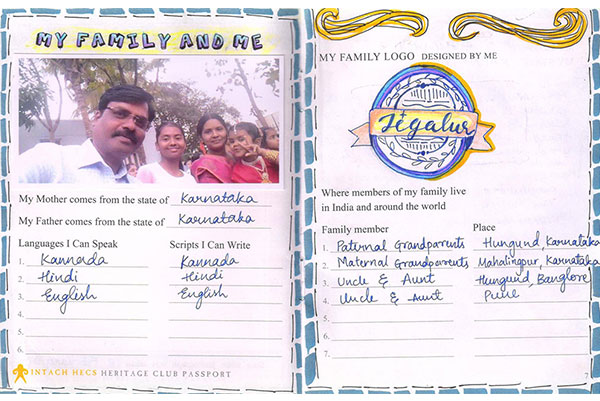 MY FAMILY AND ME
My Mother comes from the state of Karnataka
My Father comes from the state of Karnataka
Languages I Can Speak Scripts I Can Write
1. Kannada Kannada
2. Hindi Hindi
3. English English
4.
5.
6.
INTACH HECS HERITAGE CLUB PASSPORT
MY FAMILY LOGO DESIGNED BY ME
Jigalur
Where members of my family live
in India and around the world
Family member Place
1. Paternal Grandparents Hungund, Karnataka
2. Maternal Grandparents Mahalingpur, Karnataka
3. Uncle & Aunt Hungund, Banglore
4. Uncle & Aunt Pune
5.
6.
7.
7